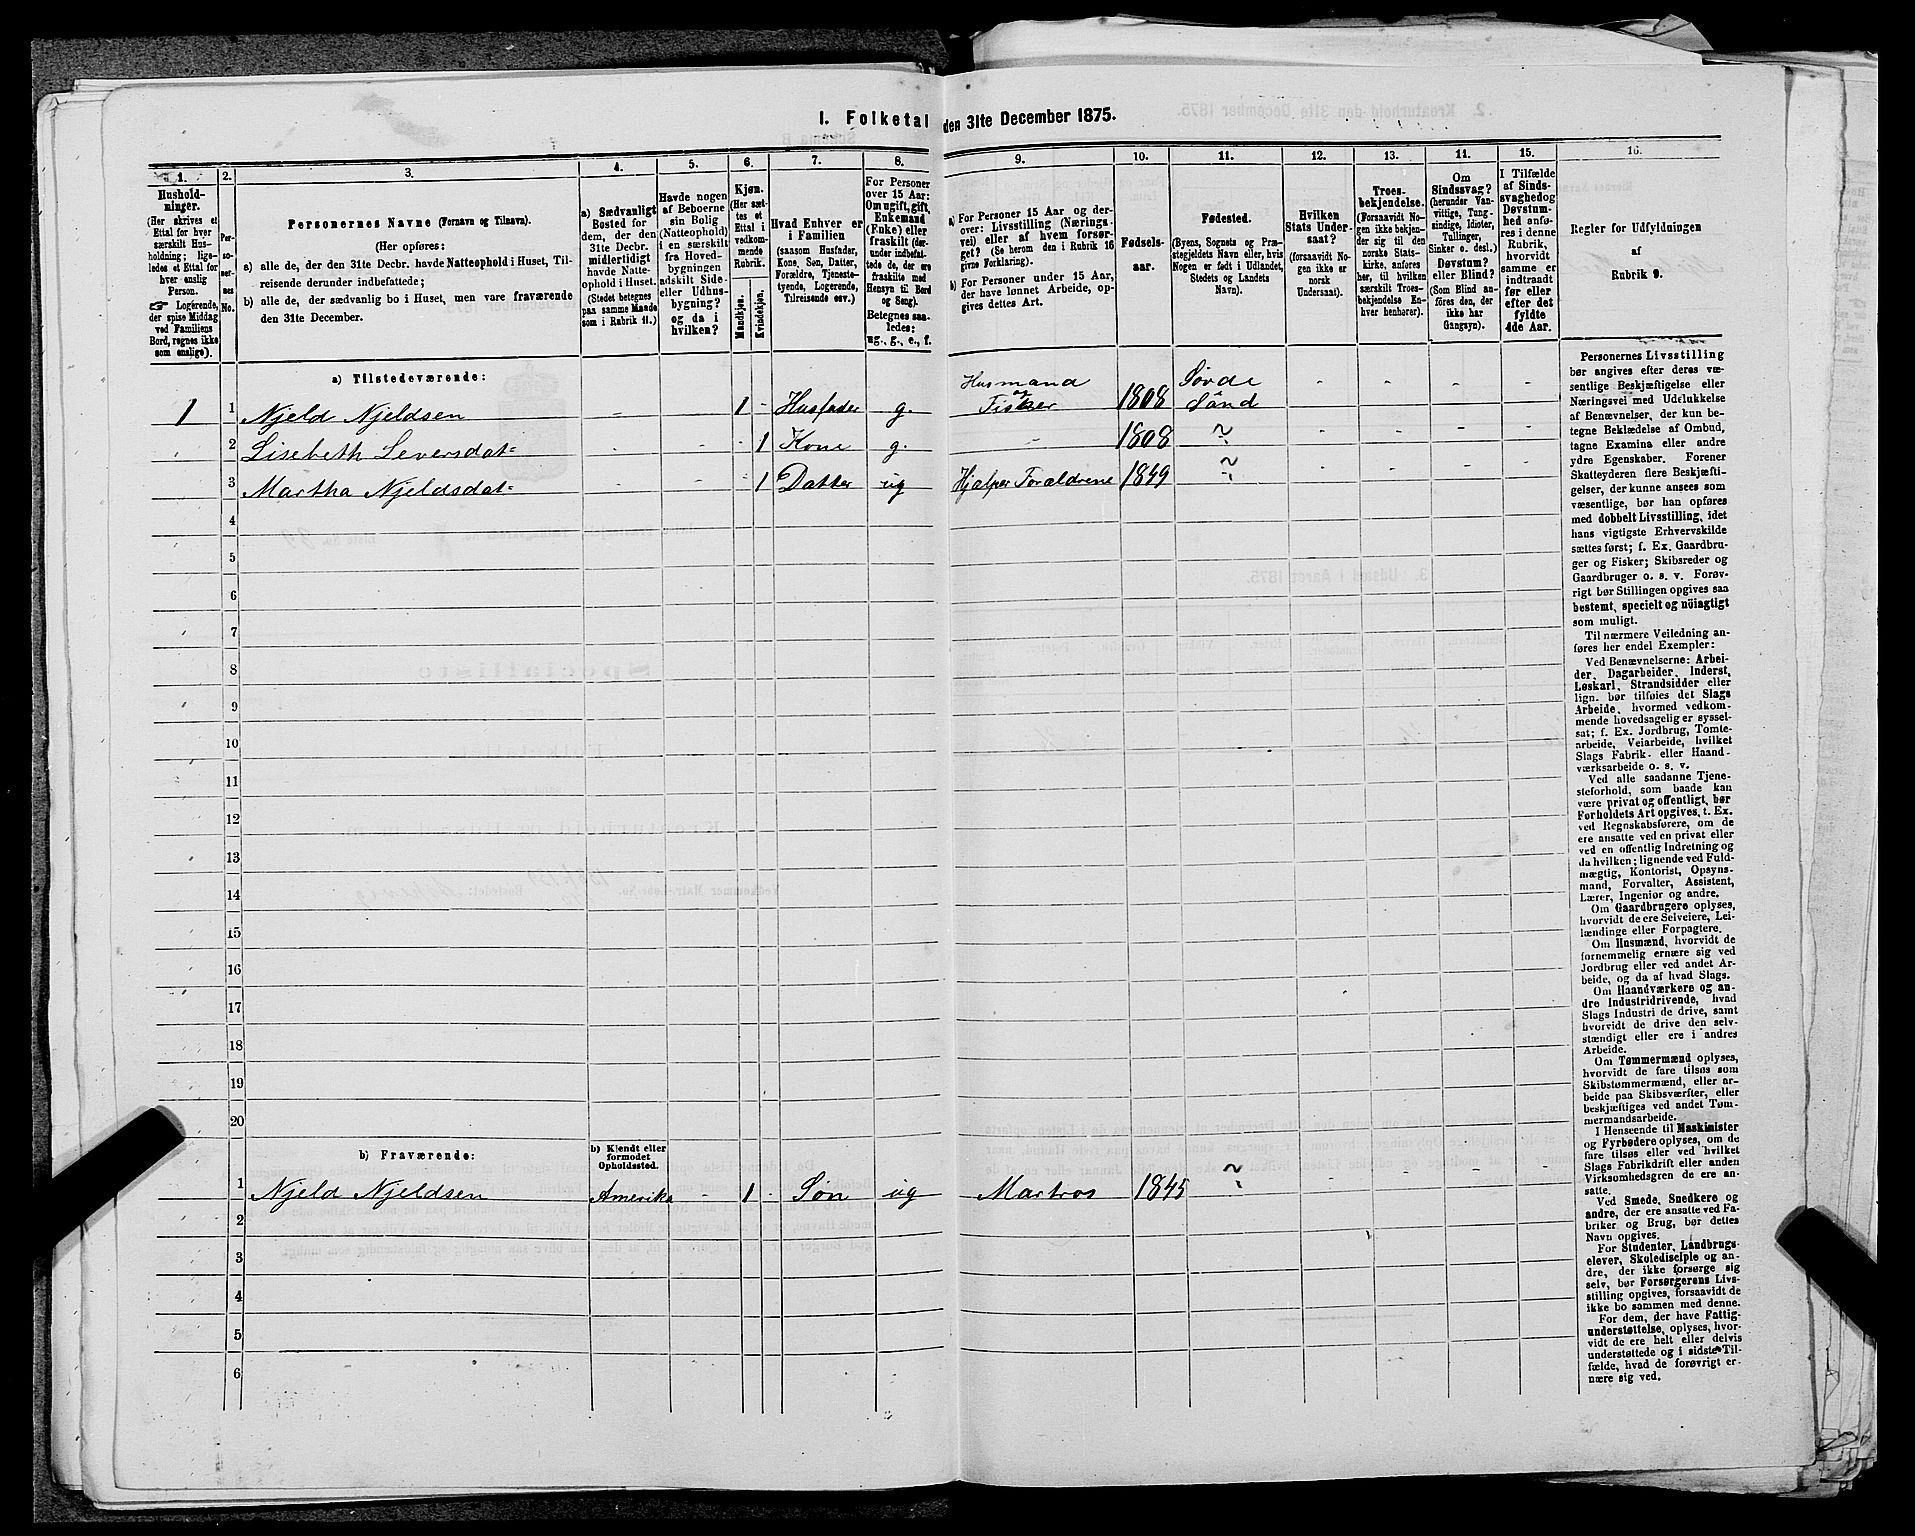 I. Folketal den 31te December 1875.
1. 2. 3. 4. 5. 6. 7. 8. 9. 10. 11. 12. 13. 14. 15. 16.
Hushold-
ninger.
(Her skrives et
Ettal for hver
særskilt Hus-
holdning; lige-
ledes et Ettal for
hver enslig
Person.
☞ Logerende,
der spise Middag
ved Familiens
Bord, regnes ikke
som enslige).
Per-
so-
ner-
nes
No.
Personernes Navne (Fornavn og Tilnavn).
(Her opføres:
a) alle de, der den 31te Decbr. havde Natteophold i Huset, Til-
reisende derunder indbefattede;
b) alle de, der sædvanlig bo i Huset, men vare fraværende
den 31te December.
a) Sædvanligt
Bosted for
dem, der den
31te Decbr.
midlertidigt
havde Natte-
ophold i Huset.
(Stedet betegnes
paa samme Maade
som i Rubrik 11.)
Havde nogen
af Beboerne
sin Bolig
(Natteophold)
i en særskilt
fra Hoved-
bygningen
adskilt Side-
eller Udhus-
bygning?
og da i
hvilken?
Kjøn.
(Her sæt-
tes et
Ettal i
vedkom-
mende
Rubrik.
Mandkjøn.
Kvindekjøn.
Hvad Enhver er
i Familien
(saasom Husfader,
Kone, Søn, Datter,
Forældre, Tjeneste-
tyende, Logerende,
Tilreisende osv.)
For Personer
over 15 Aar:
Om ugift, gift,
Enkemand
(Enke) eller
fraskilt (der-
under indbefat-
tede de, der ere
fraskilte med
Hensyn til Bord
og Seng).
Betegnes saa-
ledes:
ug., g., e., f.
a) For Personer 15 Aar og der-
over: Livsstilling (Nærings-
vei) eller af hvem forsør-
get? (Se herom den i Rubrik 16
givne Forklaring).
b) For Personer under 15 Aar,
der have lønnet Arbeide, op-
gives dettes Art.
Fødsels-
aar.
Fødested.
(Byens, Sognets og Præ-
stegjeldets Navn eller, hvis
Nogen er født i Udlandet,
Stedets og Landets
Navn).
Hvilken
Stats Under-
saat?
(forsaavidt No-
gen ikke er
norsk
Undersaat).
Troes-
bekjendelse.
(Forsaavidt No-
gen ikke bekjen-
der sig til den
norske Stats-
kirke, anføres
her, til hvilken
særskilt Troes-
bekjendelse En-
hver henhører).
Om
Sindssvag?
(herunder Van-
vittige, Tung-
sindige, Idioter,
Tullinger,
Sinker o. desl.)
Døvstum?
eller Blind?
(Som Blind an-
føres den, der
ikke har
Gangsyn).
I Tilfælde
af Sinds-
svaghed og
Døvstum-
hed anfø-
res i denne
Rubrik,
hvorvidt
samme er
indtraadt
før eller
efter det
fyldte
4de Aar.
Regler for Udfyldningen
af
Rubrik 9.
a) Tilstedeværende:
1 1 Njeld Njeldsen - - 1 - Husfader g. Husmand og Fisker 1808 Søvde Sand - - - -
2 Lisebeth Seversdat= - - - 1 Kone g. - 1808 ~ - - - -
3 Martha Njeldsdat= - - - 1 Datter ug Hjælper Forældrene 1849 ~ - - - -
4
5
6
7
8
9
10
11
12
13
14
15
16
17
18
19
20
b) Fraværende:
b) Kjendt eller
formodet
Opholdssted.
1 Njeld Njeldsen Amerika - 1 - Søn ug Martros 1845 ~ - - - -
2
3
4
5
6
Personernes Livsstilling
bør angives efter deres væ-
sentlige Beskjæftigelse eller
Næringsvei med Udelukkelse
af Benævnelser, der kun be-
tegne Beklædelse af Ombud,
tagne Examina eller andre
ydre Egenskaber. Forener
Skatteyderen flere Beskjæfti-
gelser, der kunne ansees som
væsentlige, bør han opføres
med dobbelt Livsstilling, idet
hans vigtigste Erhvervskilde
sættes først; f. Ex. Gaardbru-
ger og Fisker; Skibsreder og
Gaardbruger o. s. v. Forøv-
rigt bør Stillingen opgives saa
bestemt, specielt og nøiagtigt
som muligt.
Til nærmere Veiledning an-
føres her endel Exempler:
Ved Benævnelserne: Arbei-
der, Dagarbeider, Inderst,
Løskarl, Strandsidder eller
lign. bør tilføies det Slags
Arbeide, hvormed vedkom-
mende hovedsagelig er syssel-
sat; f. Ex. Jordbrug, Tomte-
arbeide, Veiarbeide, hvilket
Slags Fabrik- eller Haand-
værksarbeide o. s. v.
Ved alle saadanne Tjene-
steforhold, som baade kan
være privat og offentligt, bør
Forholdets Art opgives, t. Ex.
ved Regnskabsførere, om de
ere ansatte ved en privat eller
ved en offentlig Indretning og
da hvilken; lignende ved Fuld-
mægtig, Kontorist, Opsyns-
mand, Forvalter, Assistent,
Lærer, Ingeniør og andre.
Om Gaardbrugere oplyses,
hvorvidt de ere Selveiere, Lei-
lændinge eller Forpagtere.
Om Husmænd, hvorvidt de
fornemmelig ernære sig ved
Jordbrug eller ved andet Ar-
beide, og da af hvad Slags.
Om Haandværkere og an-
dre Industridrivende, hvad
Slags Industri de drive, samt
hvorvidt de drive den selv-
stændigt eller ere i andres
Arbeide.
Om Tømmermænd oplyses,
hvorvidt de fare tilsøs som
Skibstømmermænd, eller ar-
beide paa Skibsværfter, eller
beskjæftiges ved andet Tøm-
mermandsarbeide.
I Henseende til Maskinister
og Fyrbødere oplyses, om de
fare tilsøs eller ved hvilket
Slags Fabrikdrift eller anden
Virksomhedsgren de ere an-
satte.
Ved Smede, Snedkere og
andre, der ere ansatte ved Fa-
briker og Brug, bør dettes
Navn opgives.
For Studenter, Landbrugs-
elever, Skoledisciple og an-
dre, der ikke forsørge sig
selv, bør Forsørgerens Livs-
stilling opgives, forsaavidt de
ikke bo sammen med denne.
For dem, der have Fattig-
understøttelse, oplyses, hvor-
vidt de ere helt eller delvis
understøttede og i sidste Til-
fælde, hvad de forøvrigt er-
nære sig ved.